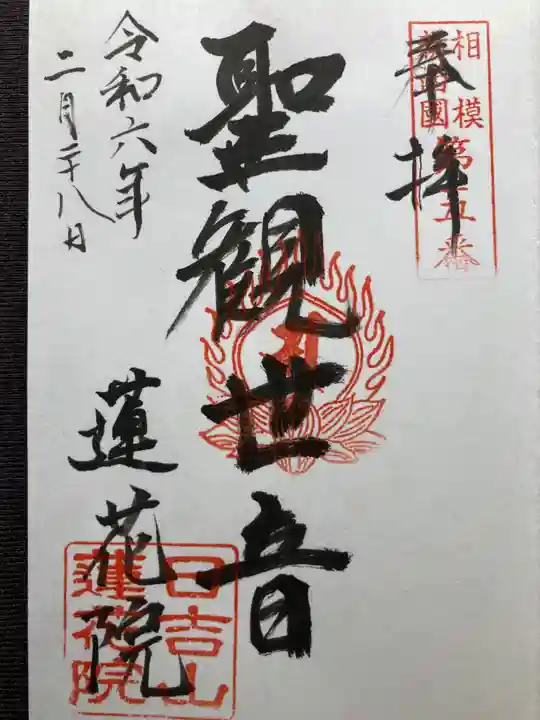 奉拝
相模
國
第十五番
聖観世音
蓮花院
日吉山
蓮花院
令和六年
二月二十八日